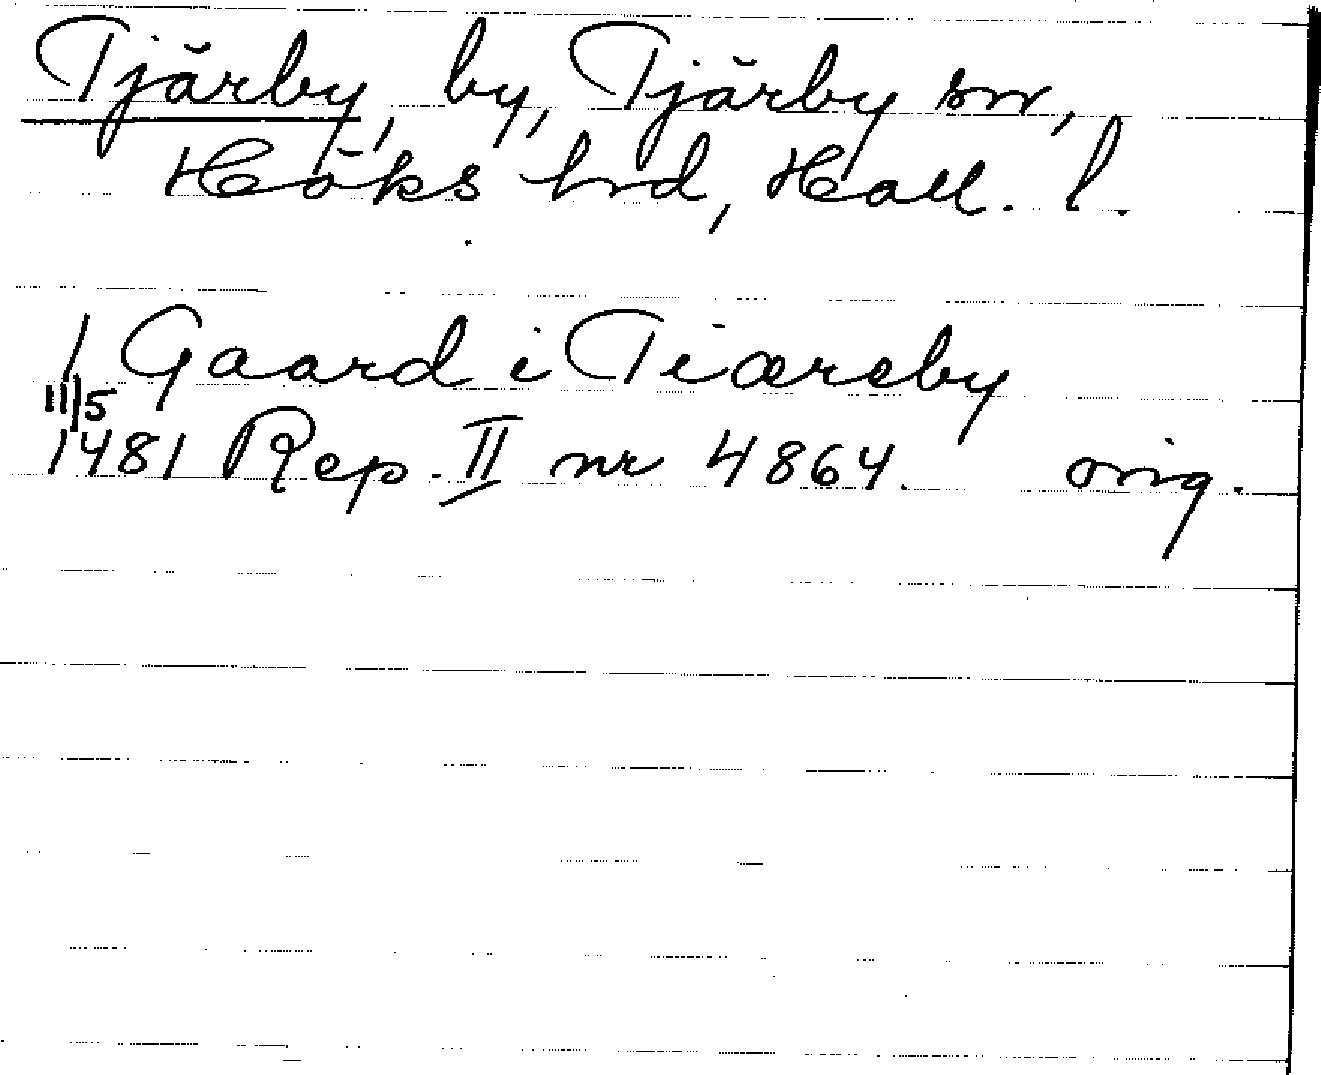 Tjärby, by, Tjärby sn,
Höks hrd, Hall. l.
1 Gaard i Tiæreby
11/5
1481 Rep. II nr 4864. orig.